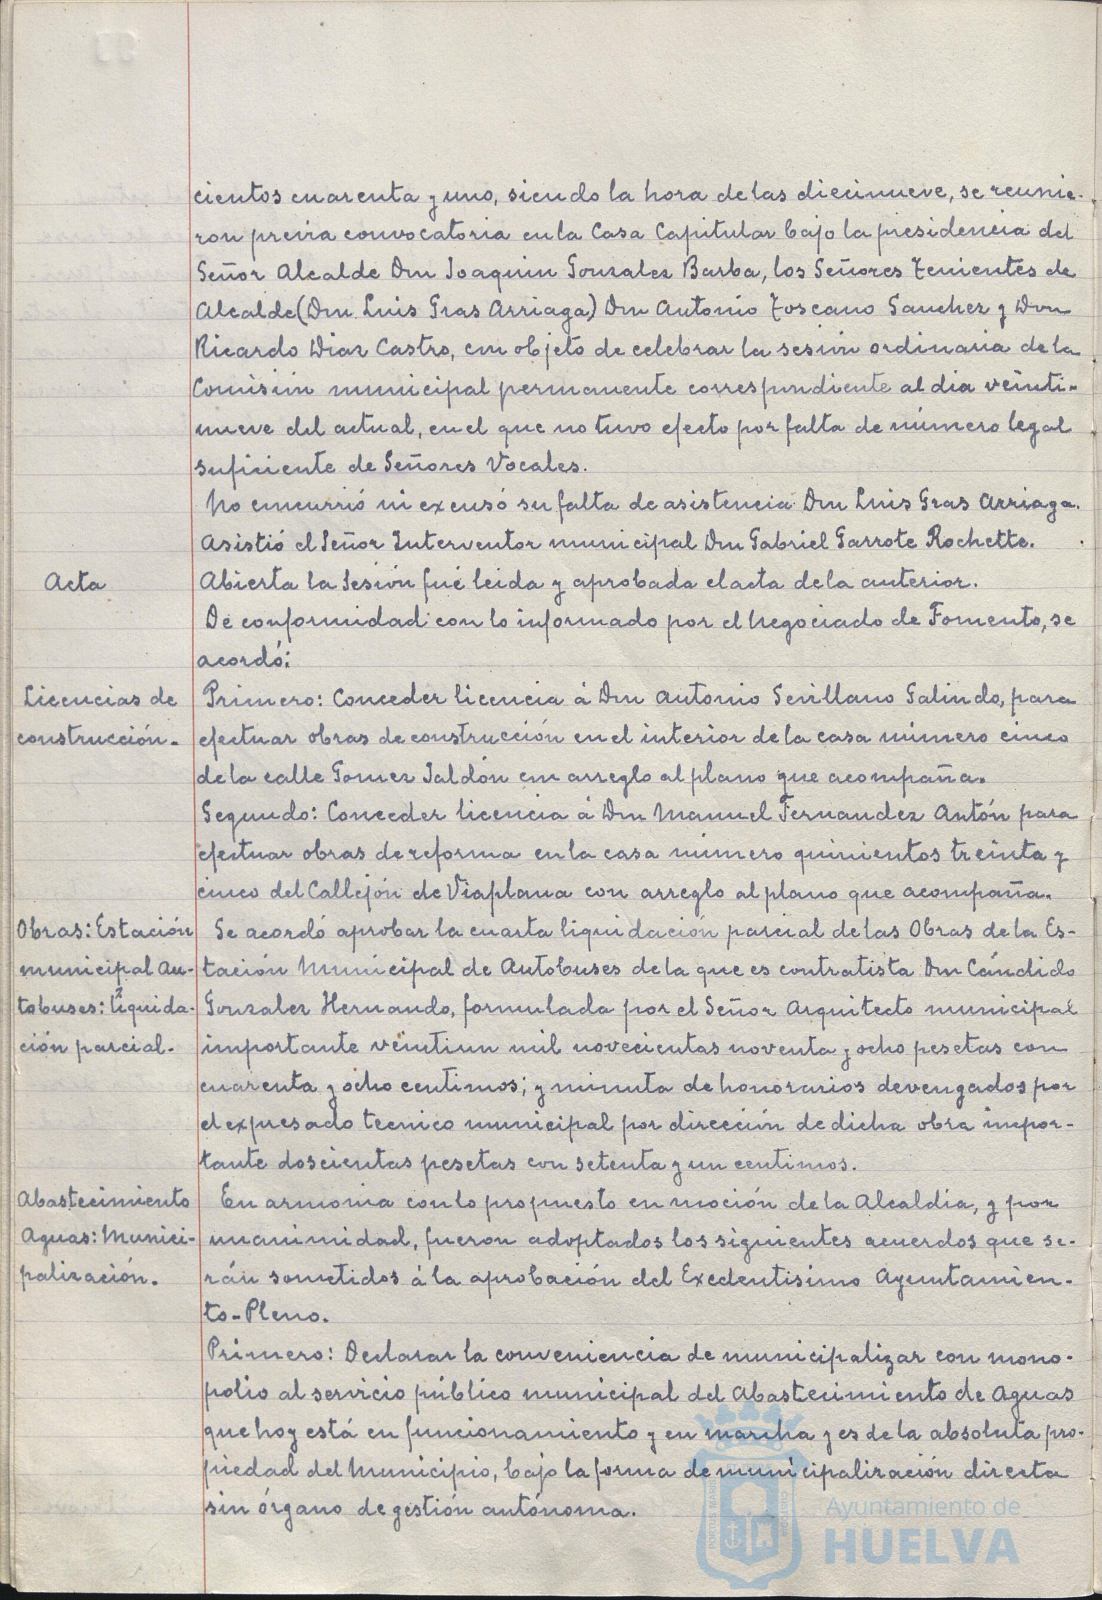 cientos cuarenta y uno, siendo la hora de las diecinueve, se reunie-
ron previa convocatoria en la Casa Capitular bajo la presidencia del
Señor Alcalde Don Joaquin Gonzalez Barba, los Señores Tenientes de
Alcalde (Don Luis Gras Arriaga) Don Antonio Toscano Sanchez y Don
Ricardo Diaz Castro, con objeto de celebrar la sesión ordinaria de la
Comisión municipal permanente correspondiente al dia veinti-
nueve del actual, en el que no tuvo efecto por falta de número legal
suficiente de Señores Vocales.
No concurrió ni excusó su falta de asistencia Don Luis Gras Arriaga.
Asistió el Señor Interventor municipal Don Gabriel Garrote Rochette.
Acta
Abierta la Sesión fué leida y aprobada el acta de la anterior.
De conformidad con lo informado por el Negociado de Fomento, se
acordó:
Licencias de
construcción.-
Primero: Conceder licencia á Don Antonio Sevillano Galindo, para
efectuar obras de construcción en el interior de la casa número cinco
de la calle Gomez Jaldón con arreglo al plano que acompaña.
Segundo: Conceder licencia á Don Manuel Fernandez Antón para
efectuar obras de reforma en la casa número quinientos treinta y
cinco del Callejón de Viaplana con arreglo al plano que acompaña.
Obras: Estación
municipal Au-
tobuses: liquida-
ción parcial.-
Se acordó aprobar la cuarta liquidación parcial de las Obras de la Es-
tación Municipal de Autobuses de la que es contratista Don Cándido
Gonzalez Hernando, formulada por el Señor Arquitecto municipal
importante veintiun mil novecientas noventa y ocho pesetas con
cuarenta y ocho centimos; y minuta de honorarios devengados por
el expresado tecnico municipal por dirección de dicha obra impor-
tante doscientas pesetas con setenta y un centimos.
Abastecimiento
Aguas: Munici-
palización.
En armonia con lo propuesto en moción de la Alcaldia, y por
unanimidad, fueron adoptados los siguientes acuerdos que se-
rán sometidos á la aprobación del Exedentisimo Ayuntamien-
to-Pleno.
Primero: Declarar la conveniencia de municipalizar con mono-
polio al servicio público municipal del Abastecimiento de Aguas
que hoy está en funcionamiento y en marcha y es de la absoluta pro-
piedad del Municipio, bajo la forma de municipalización directa
sin órgano de gestión autónoma.
Ayuntamiento de
HUELVA